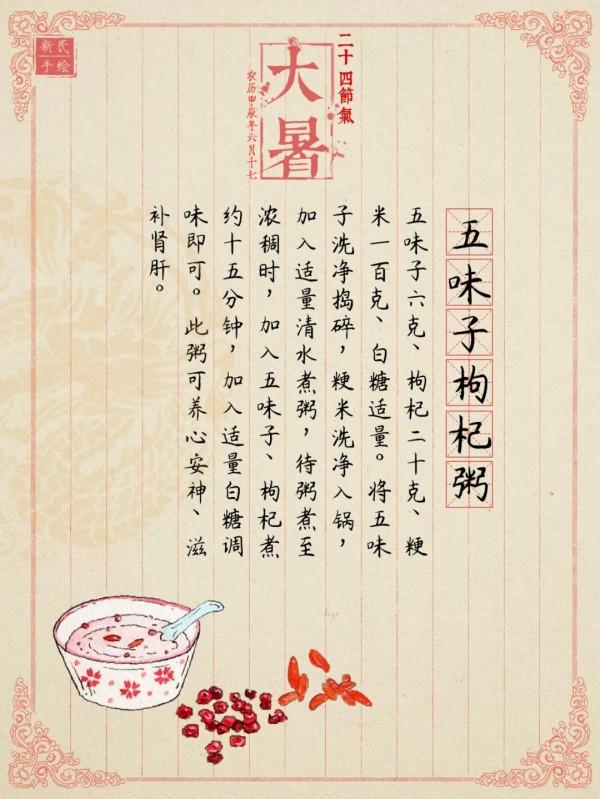 新民
手绘
二十四節氣
大暑
农历甲辰年六月十七
五味子枸杞粥
五味子六克、枸杞二十克、粳
米一百克、白糖适量。将五味
子洗净捣碎，粳米洗净入锅，
加入适量清水煮粥，待粥煮至
浓稠时，加入五味子、枸杞煮
约十五分钟，加入适量白糖调
味即可。此粥可养心安神、滋
补肾肝。